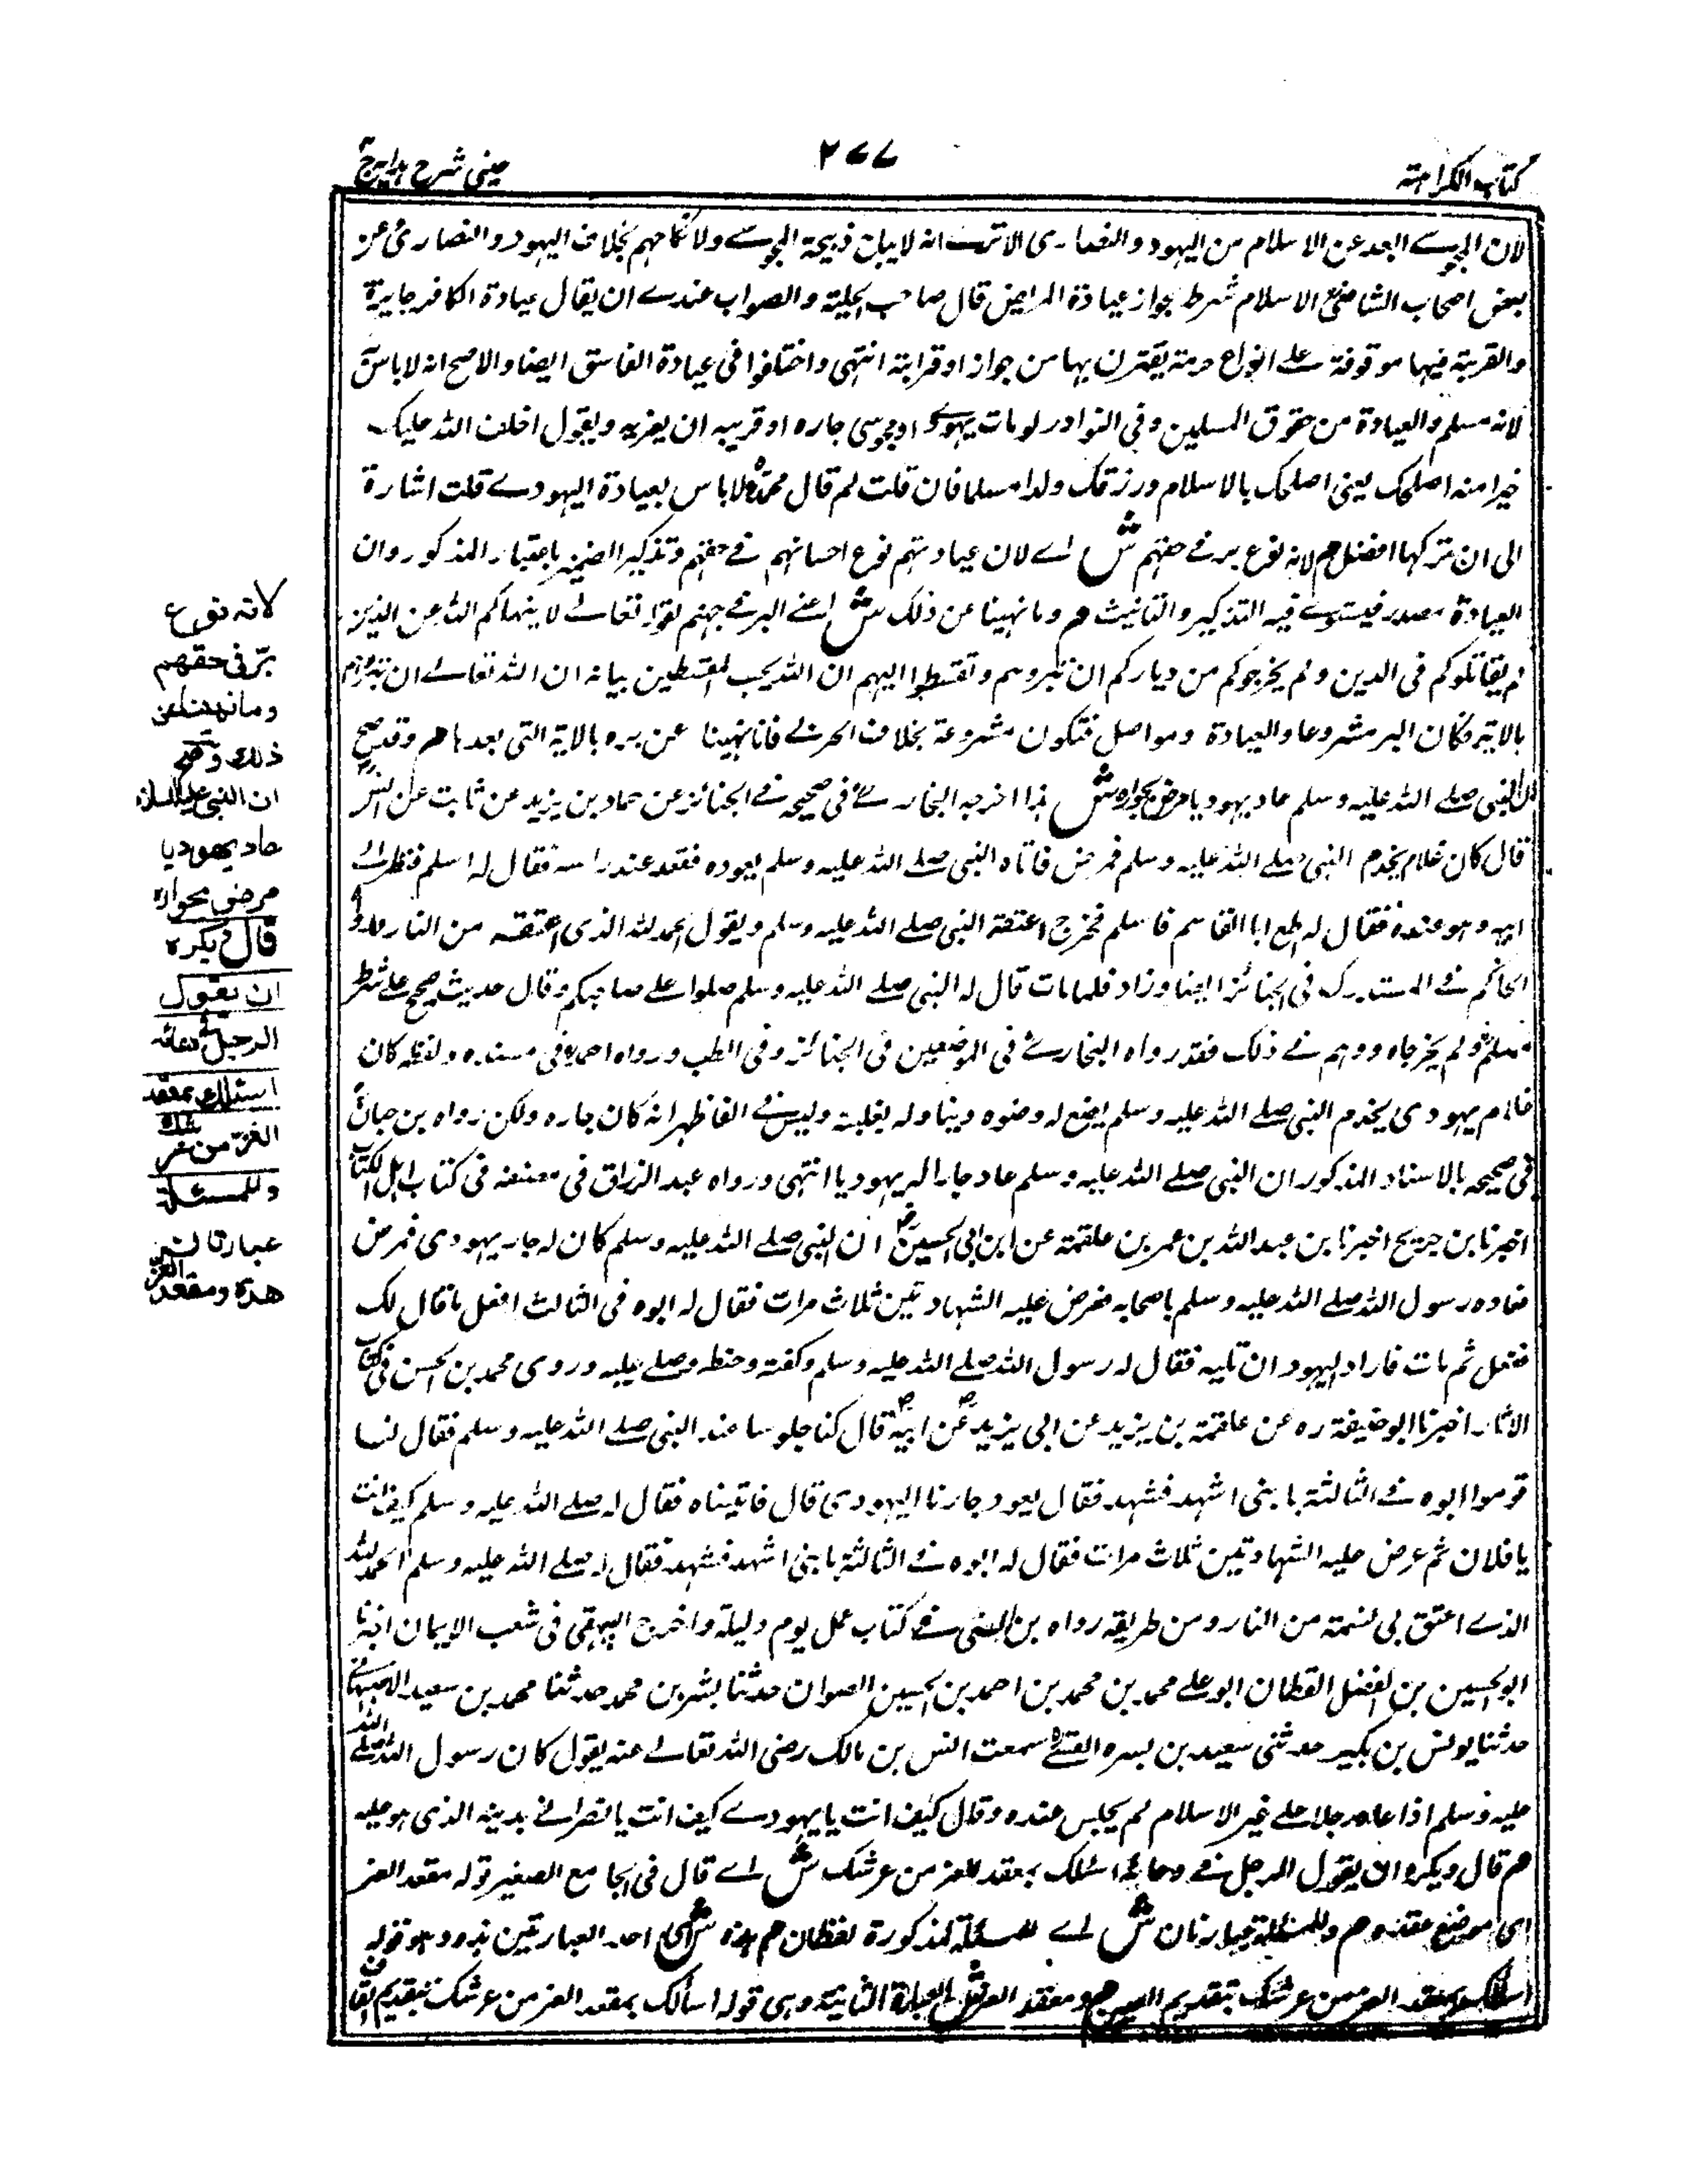 كتاب الكراهته
٢٧٧
عينى شرح هدايه ج
لان المجوسے ابعد عن الاسلام من اليهود والنصارى الا ترے انه لا يباح ذبيحة المجوسے ولا نكاحهم بخلاف اليهود والنصارى عن
بعض اصحاب الشافعى الاسلام شرط بجواز عيادة المريض قال صاحب الحلية والصواب عندے ان يقال عيادة الكافر جايزة
والقربة فيها موقوفة علے انواع حرمة يقترن بها من جواز او قرابة انتهى واختلفوا فى عيادة الفاسق ايضا والاصح انه لا باس
لانه مسلم والعيادة من حقوق المسلمين وفى النوادر لو مات يهودے او مجوسى جاره او قريبه ان يعزيه ويقول اخلف الله عليك
خيرا منه اصلحك يعنى اصلحك بالاسلام ورزقك ولدا مسلما فان قلت لم قال محمد لا باس بعيادة اليهودے قلت اشارة
الى ان تركها افضل هم لانه نوع بر فے حقهم ش اے لان عيادتهم نوع احسانهم فے حقهم وتذكير الضمير باعتبار المذكور وان
العيادة مصدر فيستوے فيه التذكير والتانيث هم وما نهينا عن ذلك ش اعنے البر فے حقهم لقوله تعالے لا ينهاكم الله عن الذين
لم يقاتلوكم فى الدين ولم يخرجوكم من دياركم ان تبروهم وتقسطوا اليهم ان الله يحب المقسطين بيانه ان الله تعالے ان
بالاية فكان البر مشروعا والعيادة ومواصل فتكون مشروعة بخلاف الحربے فانا نهينا عن بره بالاية التى بعدها هم وقد صح
ان النبى صلے الله عليه وسلم عاد يهوديا مرض بجواره ش هذا اخرجه البخارے فى صحيحه فے الجنائز عن حماد بن يزيد عن ثابت عن انس
قال كان غلام يخدم النبى صلے الله عليه وسلم فمرض فاتاه النبى صلے الله عليه وسلم يعوده فقعد عند راسه فقال له اسلم فنظر الے
ابيه وهو عنده فقال له اطع ابا القاسم فاسلم فخرج اعتقه النبى صلے الله عليه وسلم ويقول الحمد لله الذى اعتقه من النار
الحاكم فے المستدرك فى الجنائز ايضا وزاد فلما مات قال له النبى صلے الله عليه وسلم صلوا علے صاحبكم وقال حديث صحيح علے شرط
مسلم ولم يخرجاه ووهم فے ذلك فقد رواه البخارے فى الموضعين فى الجنائز وفى الطب ورواه احمد فى مسنده ولفظه كان
غلام يهودى يخدم النبى صلے الله عليه وسلم يضع له وضوه ويناوله نعليه وليس فے الفاظهم انه كان جاره ولكن رواه بن حبان
فى صحيحه بالاسناد المذكور ان النبى صلے الله عليه وسلم عاد جارا له يهوديا انتهى ورواه عبد الرزاق فى مصنفه فى كتاب اهل الكتاب
اخبرنا بن جريج اخبرنا بن عبد الله بن عمر بن علقمة عن ابن ابى الحسين ان النبى صلے الله عليه وسلم كان له جار يهودى فمرض
فعاده رسول الله صلے الله عليه وسلم باصحابه فعرض عليه الشهادتين ثلاث مرات فقال له ابوه فى الثالث افعل ما قال لك
ففعل ثم مات فاراد اليهود ان تليه فقال له رسول الله صلے الله عليه وسلم وكفنه وحنطه وصلے عليه وروى محمد بن الحسن فى كتاب
الاثار اخبرنا ابو حنيفة ره عن علقمة بن يزيد عن ابى يزيد عن ابيه قال كنا جلوسا عند النبى صلے الله عليه وسلم فقال لنا
قوموا ابوه فے الثالثة يا بنى اشهد فشهد فقال يعود جارنا اليهودى قال فاتيناه فقال له صلے الله عليه وسلم كيف انت
يا فلان ثم عرض عليه الشهادتين ثلاث مرات فقال له ابوه فے الثالثة يا بنى اشهد فشهد فقال صلے الله عليه وسلم الحمد لله
الذے اعتق بى نسمة من النار ومن طريقه رواه بن السنى فے كتاب عمل يوم وليلة واخرج البيهقى فى شعب الايمان اخبرنا
ابو الحسين بن الفضل القطان ابو علے محمد بن محمد بن احمد بن الحسين الصوان حدثنا بشر بن محمد حدثنا محمد بن سعيد الاصبهانے
حدثنا يونس بن بكير حدثنى سعيد بن ميسره القيسے سمعت انس بن مالك رضى الله تعالے عنه يقول كان رسول الله صلے الله
عليه وسلم اذا عاد رجلا علے غير الاسلام لم يجلس عنده وقال كيف انت يا يهودے كيف انت يا نصرانے بدينه الذى هو عليه
هم قال ويكره ان يقول الرجل فے دعائه اسئلك بمعقد العز من عرشك ش اے قال فى الجامع الصغير قوله معقد العز
اى موضع عقده هم وللمسئلة عبارتان ش اے للمسئلة المذكورة لفظان هم هذه ش اى احد العبارتين هذه وهو قوله
اسألك بمعقد العز من عرشك بتقديم العين هم ومقعد العز ش اى العبارة الثانية وهى قوله اسألك بمقعد العز من عرشك بتقديم القاف
لانه نوع
برّ فى حقهم
وما نهينا عن
ذلك وقد صح
ان النبى عليه السلام
عاد يهوديا
مرض بجواره
قال ويكره
ان يقول
الرجل فى دعائه
اسئلك بمعقد
العزّ من عرشك
وللمسئلة
عبارتان
هذه ومقعد العز